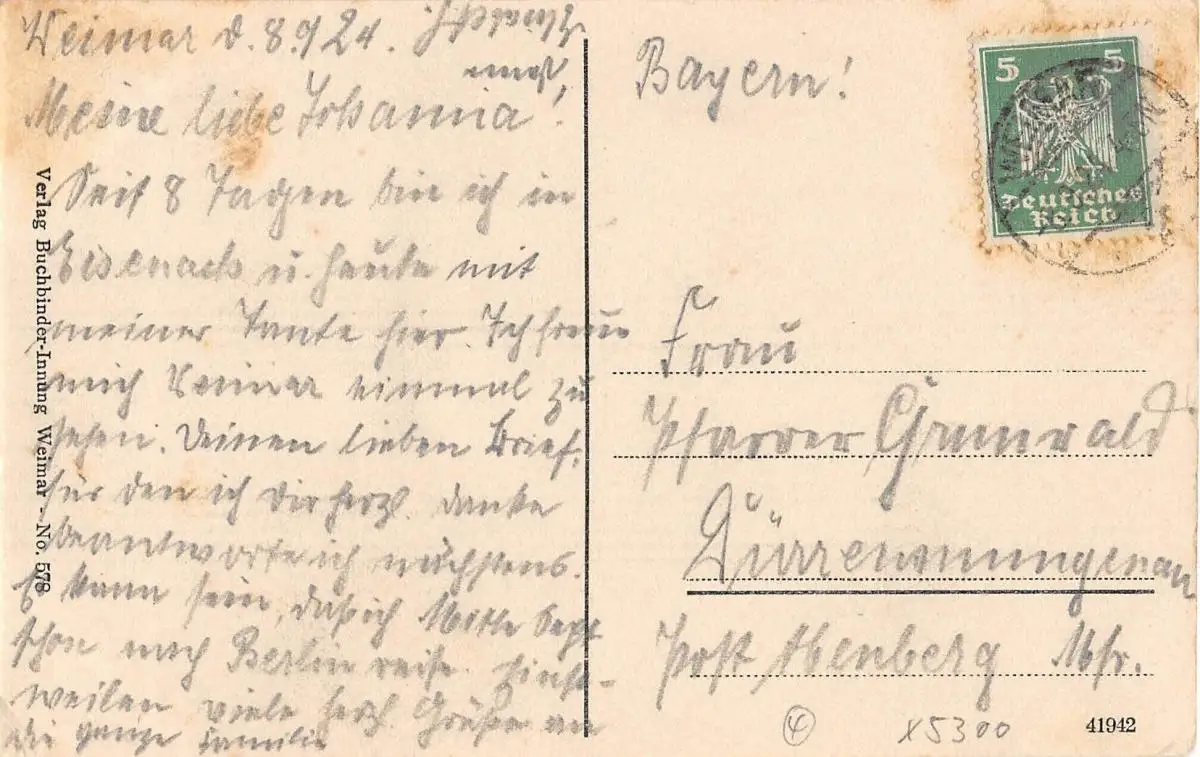 Weimar d. 8.9 24.
Meine liebe Johanna!
Seit 8 Tagen bin ich in
Eisenach u. heute mit
meiner Tante hier. Ich freue
mich Weimar einmal zu
sehen. Deinen lieben Brief,
für den ich Dir herzl. danke
beantworte ich nächstens.
Es kann sein, daß ich Mitte Sept
schon nach Berlin reise. Einst-
weilen viele herzl. Grüße an
die ganze Familie
Verlag Buchbinder-Innung Weimar - No. 578
Bayern!
5 5
Deutsches
Reich
Frau
Pfarrer Grunwald
Dürrenmungenau
Post Abenberg Mfr.
4
x5300
41942